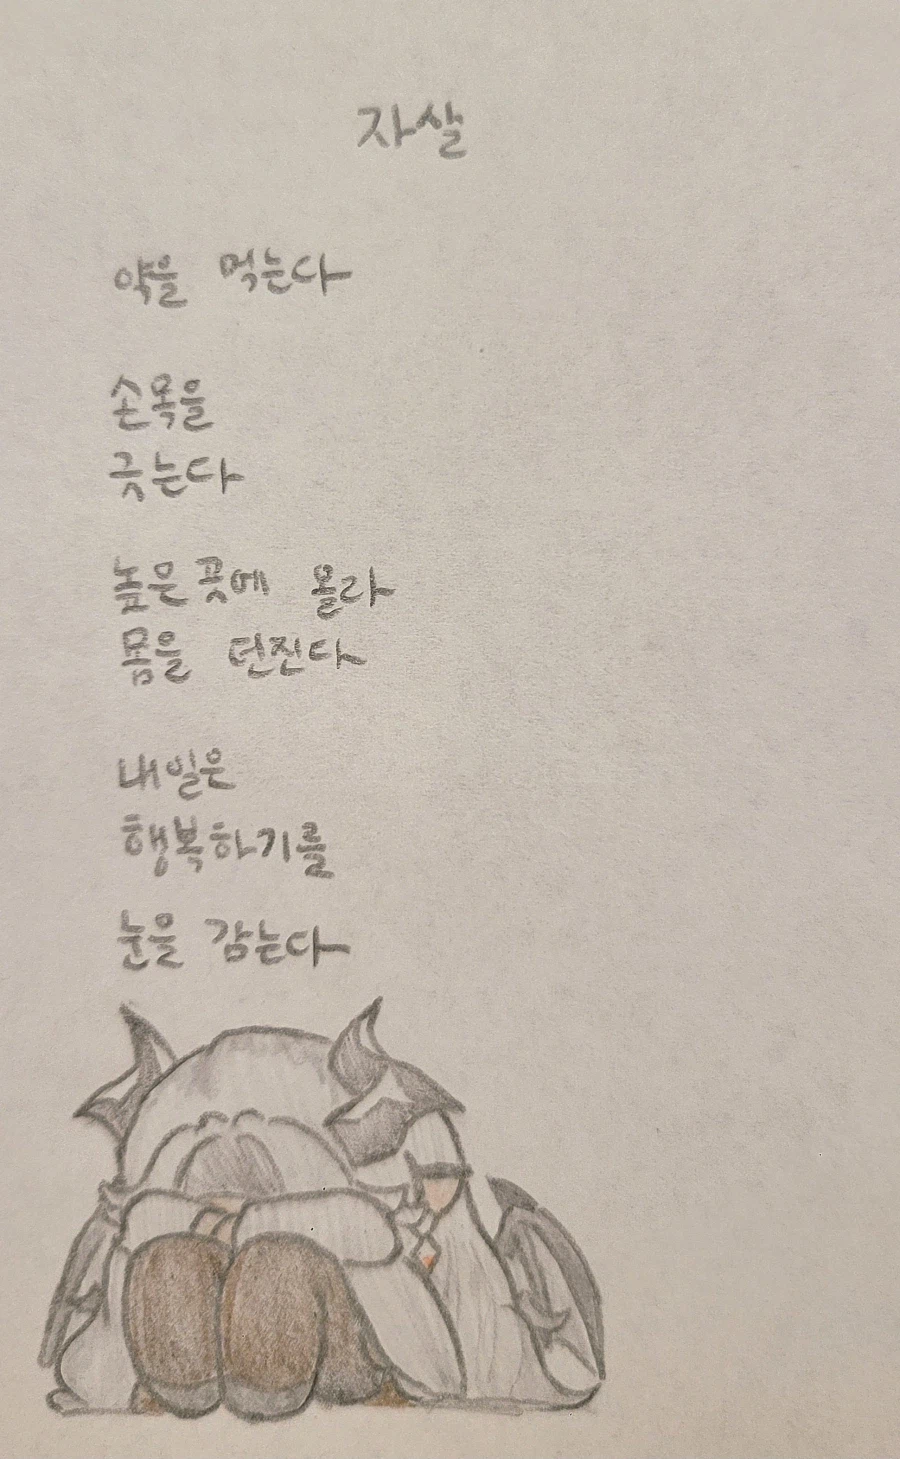 자살
약을 먹는다
손목을
긋는다
높은 곳에 올라
몸을 던진다
내일은
행복하기를
눈을 감는다